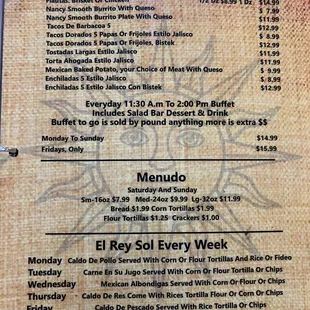 Brisket Or Chicken 1/2 Dz $8.99 1 Dz $14.99
Nancy Smooth Burrito With Queso $ 7.89
Nancy Smooth Burrito Plate With Queso $11.99
Tacos De Barbacoa 5 $12.99
Tacos Dorados 5 Papas Or Frijoles Estilo Jalisco $ 8.99
Tacos Dorados 5 Papas Or Frijoles, Bistek $12.99
Tostadas Largas Estilo Jalisco $11.99
Torta Ahogada Estilo Jalisco $11.99
Mexican Baked Potato, your Choice of Meat With Queso $ 9.99
Enchiladas 5 Estilo Jalisco $ 8.99
Enchiladas 5 Estilo Jalisco Con Bistek $12.99
Everyday 11:30 A.m To 2:00 Pm Buffet
Includes Salad Bar Dessert & Drink
Buffet to go is sold by pound anything more is extra $$
Monday To Sunday $14.99
Fridays, Only $15.99
Menudo
Saturday And Sunday
Sm-16oz $7.99 Med-24oz $9.99 Lg-32oz $11.99
Bread $1.99 Corn Tortillas $1.99
Flour Tortillas $1.25 Crackers $1.00
El Rey Sol Every Week
Monday Caldo De Pollo Served With Corn Or Flour Tortillas And Rice Or Fideo
Tuesday Carne En Su Jugo Served With Corn Or Flour Tortilla Or Chips
Wednesday Mexican Albondigas Served With Corn or Flour Or Chips
Thursday Caldo De Res Come With Rices Tortilla Flour Or Corn Or Chips
Friday Caldo De Pescado Served With Rice Tortilla Or Chips